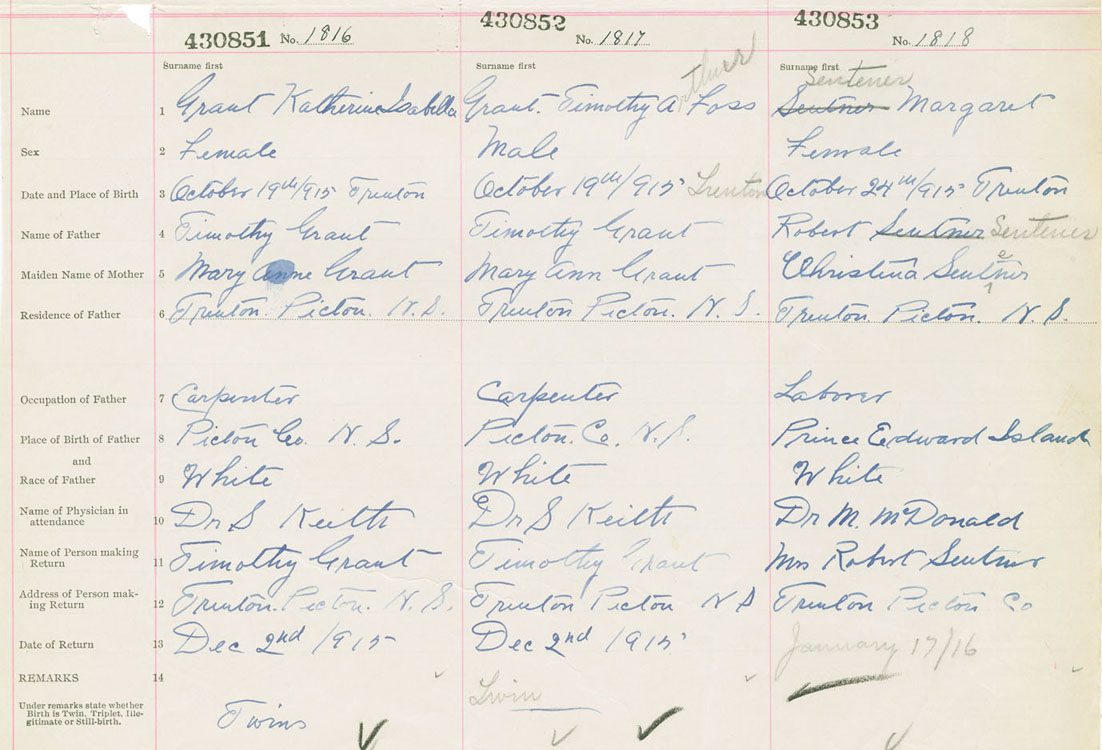 430851 No. 1816 430852 No. 1817 430853 No. 1818
Surname first Surname first Surname first
Arthur Sentener
Name 1 Grant Katherine Isabella Grant. Timothy A Foss Sentner Margaret
Sex 2 Female Male Female
Date and Place of Birth 3 October 19th/915 Trenton October 19th/915 Trenton October 24th/915 Trenton
Name of Father 4 Timothy Grant Timothy Grant Robert Sentner Sentener
Maiden Name of Mother 5 Mary Anne Grant Mary Ann Grant Christina Sentener
Residence of Father 6 Trenton. Picton. N.S. Trenton Picton. N.S. Trenton Picton. N.S.
Occupation of Father 7 Carpenter Carpenter Laborer
Place of Birth of Father 8 Picton Co. N.S. Picton. Co. N.S. Prince Edward Island
and
Race of Father 9 White White White
Name of Physician in
attendance 10 Dr S Keith Dr S Keith Dr M. McDonald
Name of Person making
Return 11 Timothy Grant Timothy Grant Mrs Robert Sentner
Address of Person mak-
ing Return 12 Trenton. Picton. N.S. Trenton Picton N S Trenton Picton Co
Date of Return 13 Dec 2nd 1915 Dec 2nd 1915 January 17/16
REMARKS 14
Twin
Under remarks state whether
Birth is Twin, Triplet, Ille-
gitimate or Still-birth.
Twins